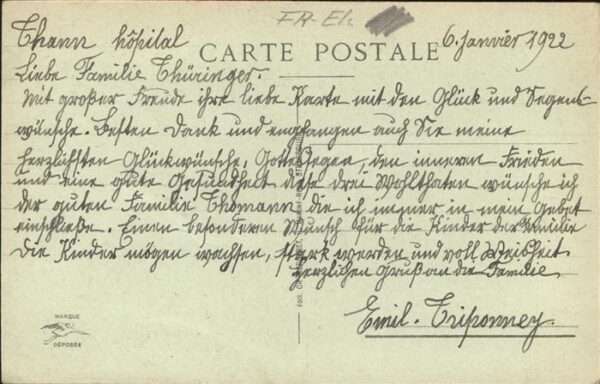 FR-El.
Thann hôpital
6. janvier 1922
CARTE POSTALE
Liebe Familie Thüringer.
Mit großer Freude ihre liebe Karte mit den Glück und Segens-
wünsche. Besten Dank und empfangen auch Sie meine
herzlichsten Glückwünsche, Gottessegen, den inneren Frieden
und eine gute Gesundheit diese drei Wohlthaten wünsche ich
der guten Familie Thomann die ich immer in mein Gebet
einschließe. Einen besonderen Wunsch für die Kinder der Familie
die Kinder mögen wachsen, stark werden und voll Weisheit
herzlichen Gruß an die Familie
Emil. Triponney.
MARQUE
DÉPOSÉE